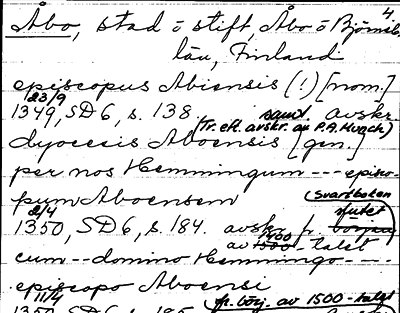 4.
Åbo, stad o stift, Åbo o Björneb.
län, Finland
episcopus Abiensis (!) [nom.]
23/9
1349, SD 6, s. 138, samt avskr.
(Tr. eft. avskr. av P.A. Huach)
dyocesis Aboensis [gen.]
per nos Hemmingum --- episco-
pum Aboensem
(Svartboken
2/4 slutet
1350, SD 6, s. 184. avskr. fr. början
1400
av 1500-talet
cum -- domino Hemmingo ---
episcopo Aboensi
11/4 fr. börj. av 1500-talet
1350, SD 6, s. 185